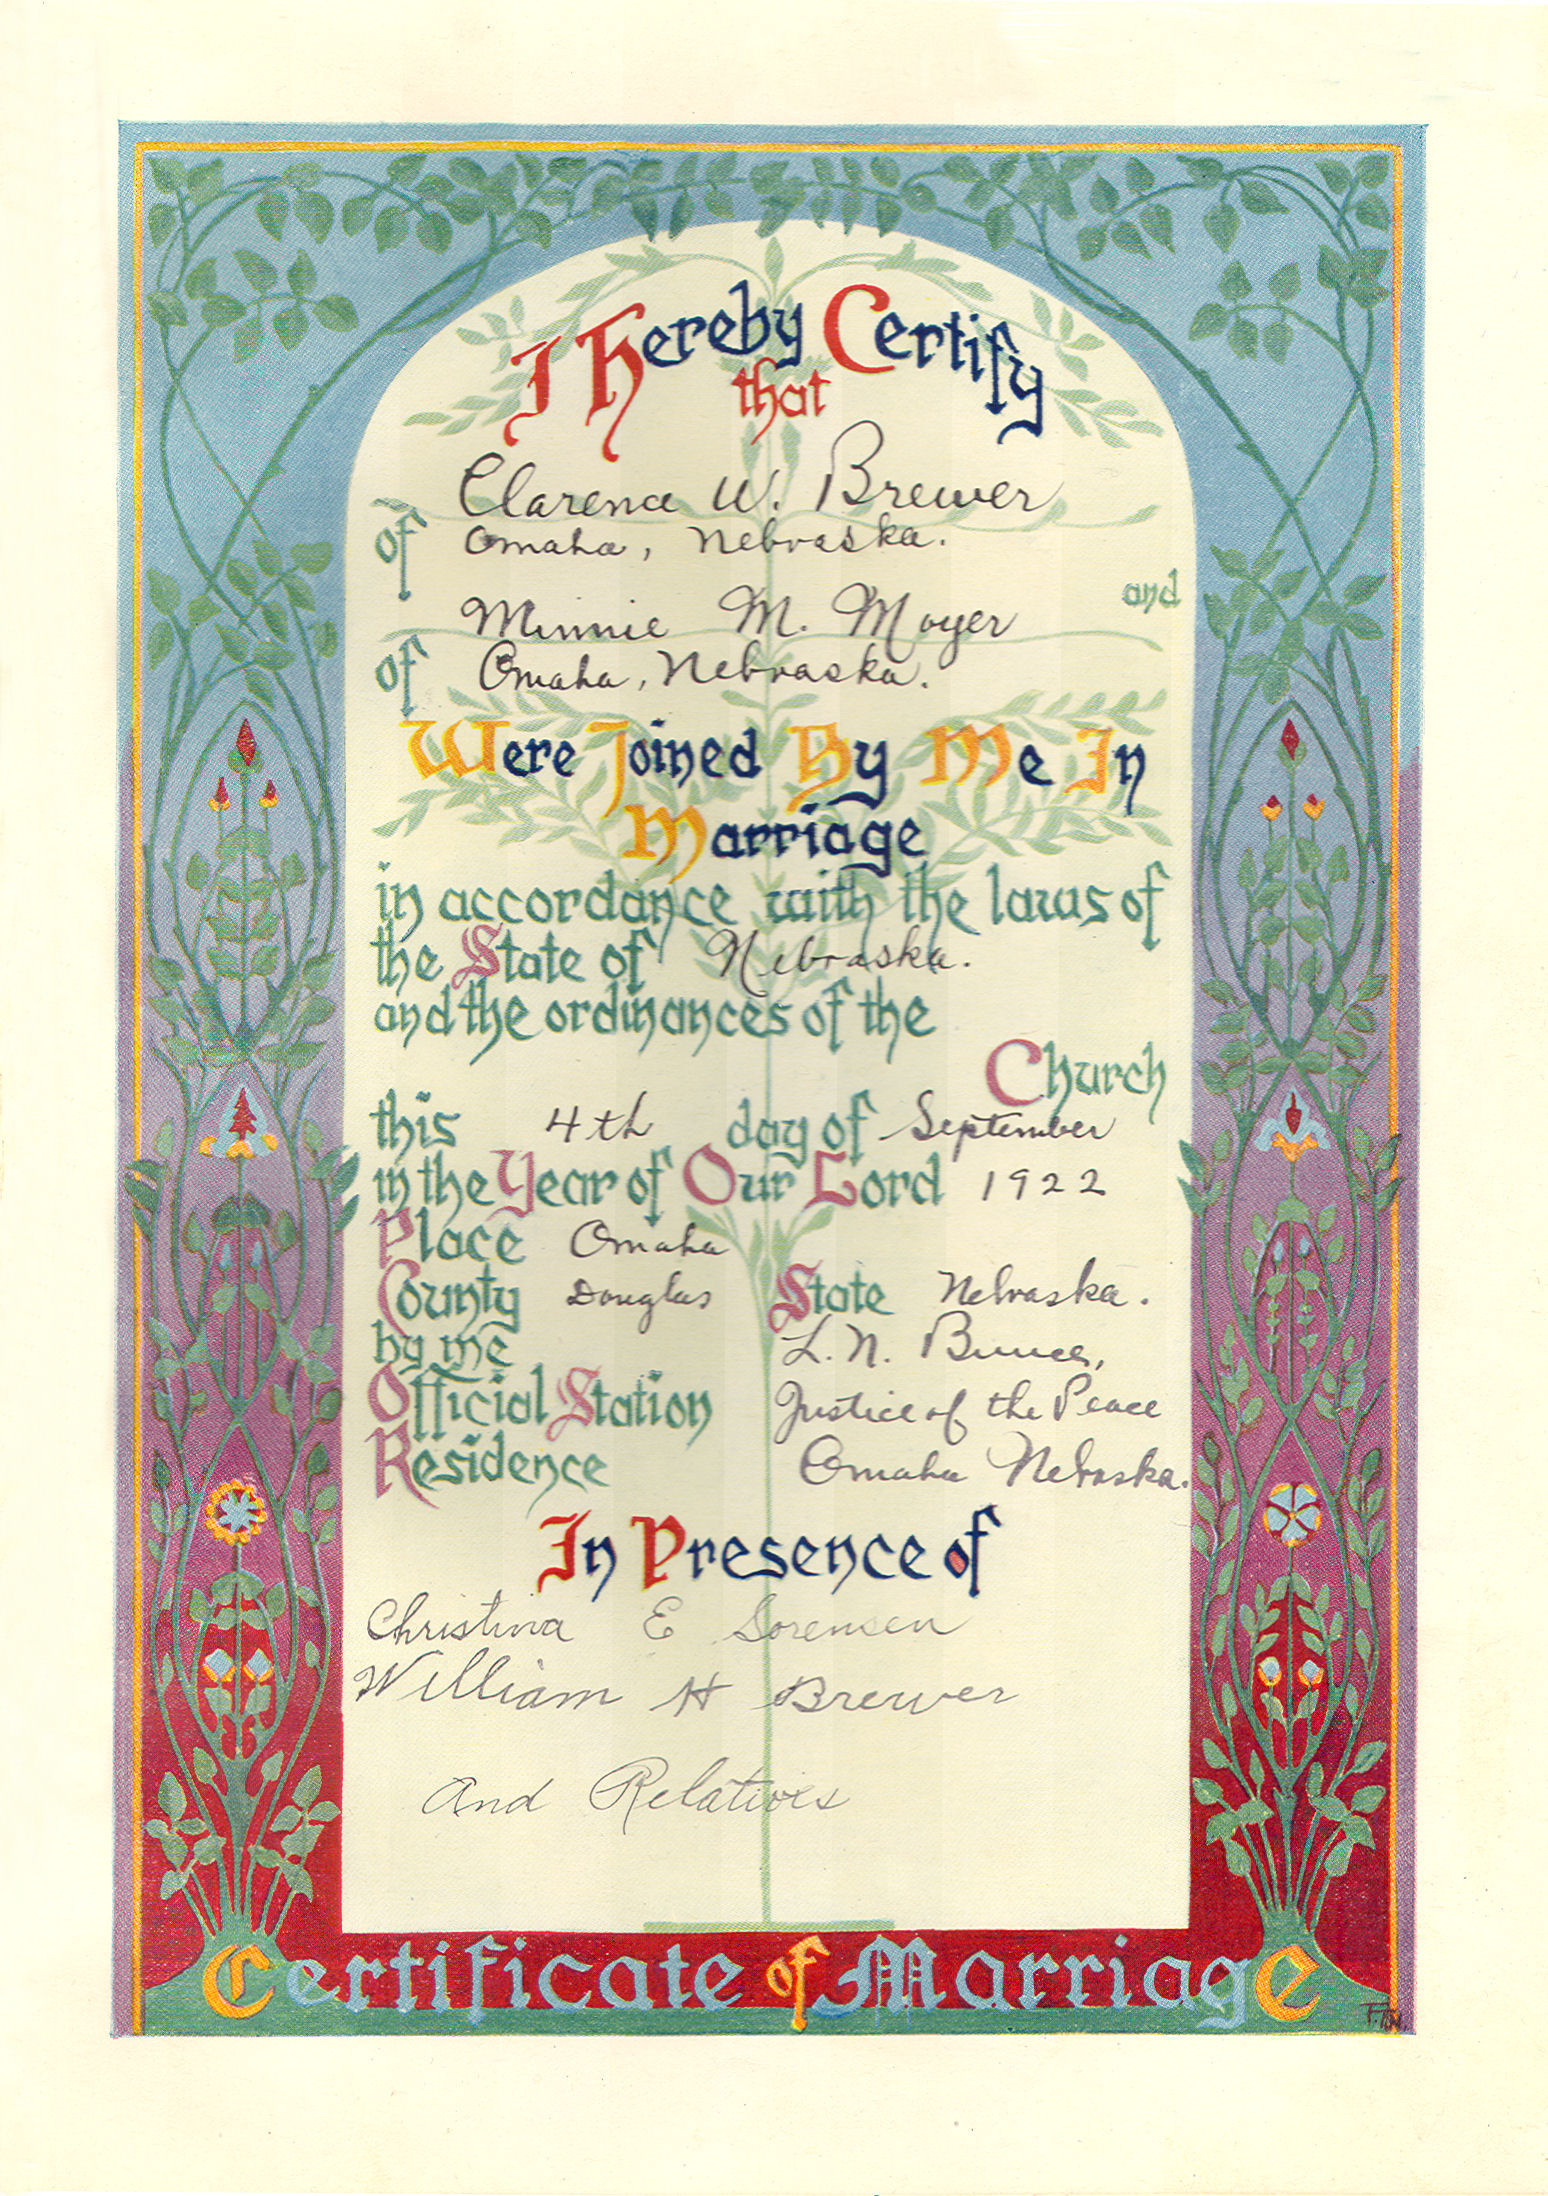 I Hereby Certify
that
Clarence W. Brewer
of Omaha, Nebraska.
and
Minnie M. Moyer
of Omaha, Nebraska.
Were Joined By Me In
Marriage
in accordance with the laws of
the State of Nebraska.
and the ordinances of the
Church
this 4th day of September
in the Year of Our Lord 1922
Place Omaha
County Douglas State Nebraska.
by me L. N. Bunce,
Official Station Justice of the Peace
Residence Omaha Nebraska.
In Presence of
Christina E Sorensen
William H Brewer
And Relatives
Certificate of Marriage